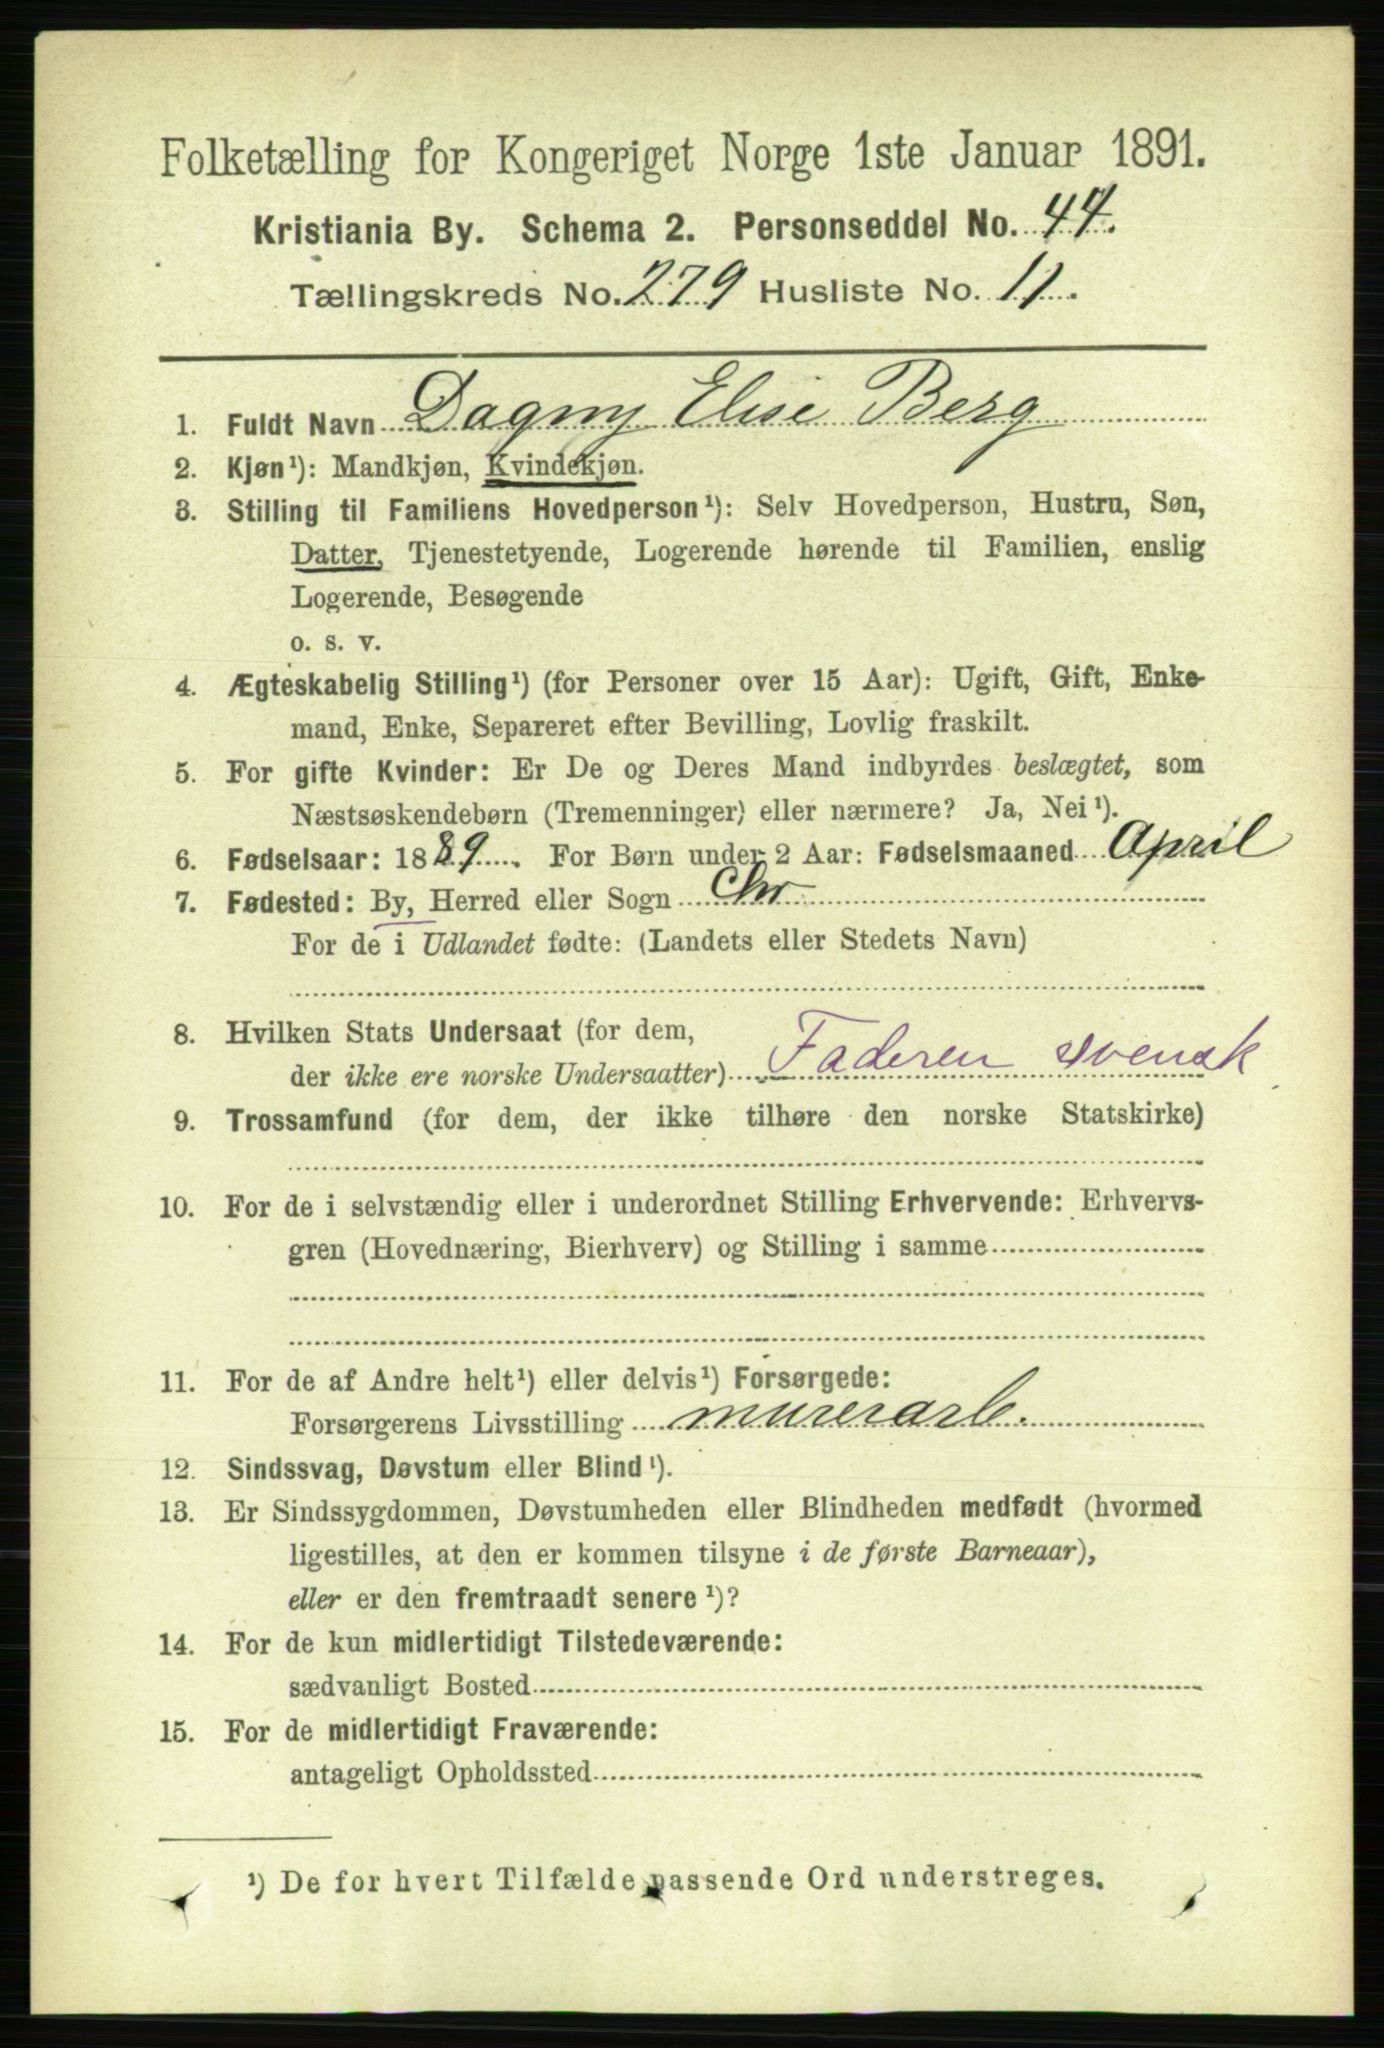 Folketælling for Kongeriget Norge 1ste Januar 1891.
Kristiania By. Schema 2. Personseddel No. 44.
Tællingskreds No. 279 Husliste No. 11.
1. Fuldt Navn Dagny Elise Berg
2. Kjøn¹): Mandkjøn, Kvindekjøn.
3. Stilling til Familiens Hovedperson¹): Selv Hovedperson, Hustru, Søn,
Datter, Tjenestetyende, Logerende hørende til Familien, enslig
Logerende, Besøgende
o. s. v.
4. Ægteskabelig Stilling¹) (for Personer over 15 Aar): Ugift, Gift, Enke-
mand, Enke, Separeret efter Bevilling, Lovlig fraskilt.
5. For gifte Kvinder: Er De og Deres Mand indbyrdes beslægtet, som
Næstsøskendebørn (Tremenninger) eller nærmere? Ja, Nei¹).
6. Fødselsaar: 1889. For Børn under 2 Aar: Fødselsmaaned April
7. Fødested: By, Herred eller Sogn Chr
For de i Udlandet fødte: (Landets eller Stedets Navn)
8. Hvilken Stats Undersaat (for dem,
der ikke ere norske Undersaatter) Faderen svensk
9. Trossamfund (for dem, der ikke tilhøre den norske Statskirke)
10. For de i selvstændig eller i underordnet Stilling Erhvervende: Erhvervs-
gren (Hovednæring, Bierhverv) og Stilling i samme
11. For de af Andre helt¹) eller delvis¹) Forsørgede:
Forsørgerens Livsstilling murerarb.
12. Sindssvag, Døvstum eller Blind¹).
13. Er Sindssygdommen, Døvstumheden eller Blindheden medfødt (hvormed
ligestilles, at den er kommen tilsyne i de første Barneaar),
eller er den fremtraadt senere¹)?
14. For de kun midlertidigt Tilstedeværende:
sædvanligt Bosted
15. For de midlertidigt Fraværende:
antageligt Opholdssted
¹) De for hvert Tilfælde passende Ord understreges.